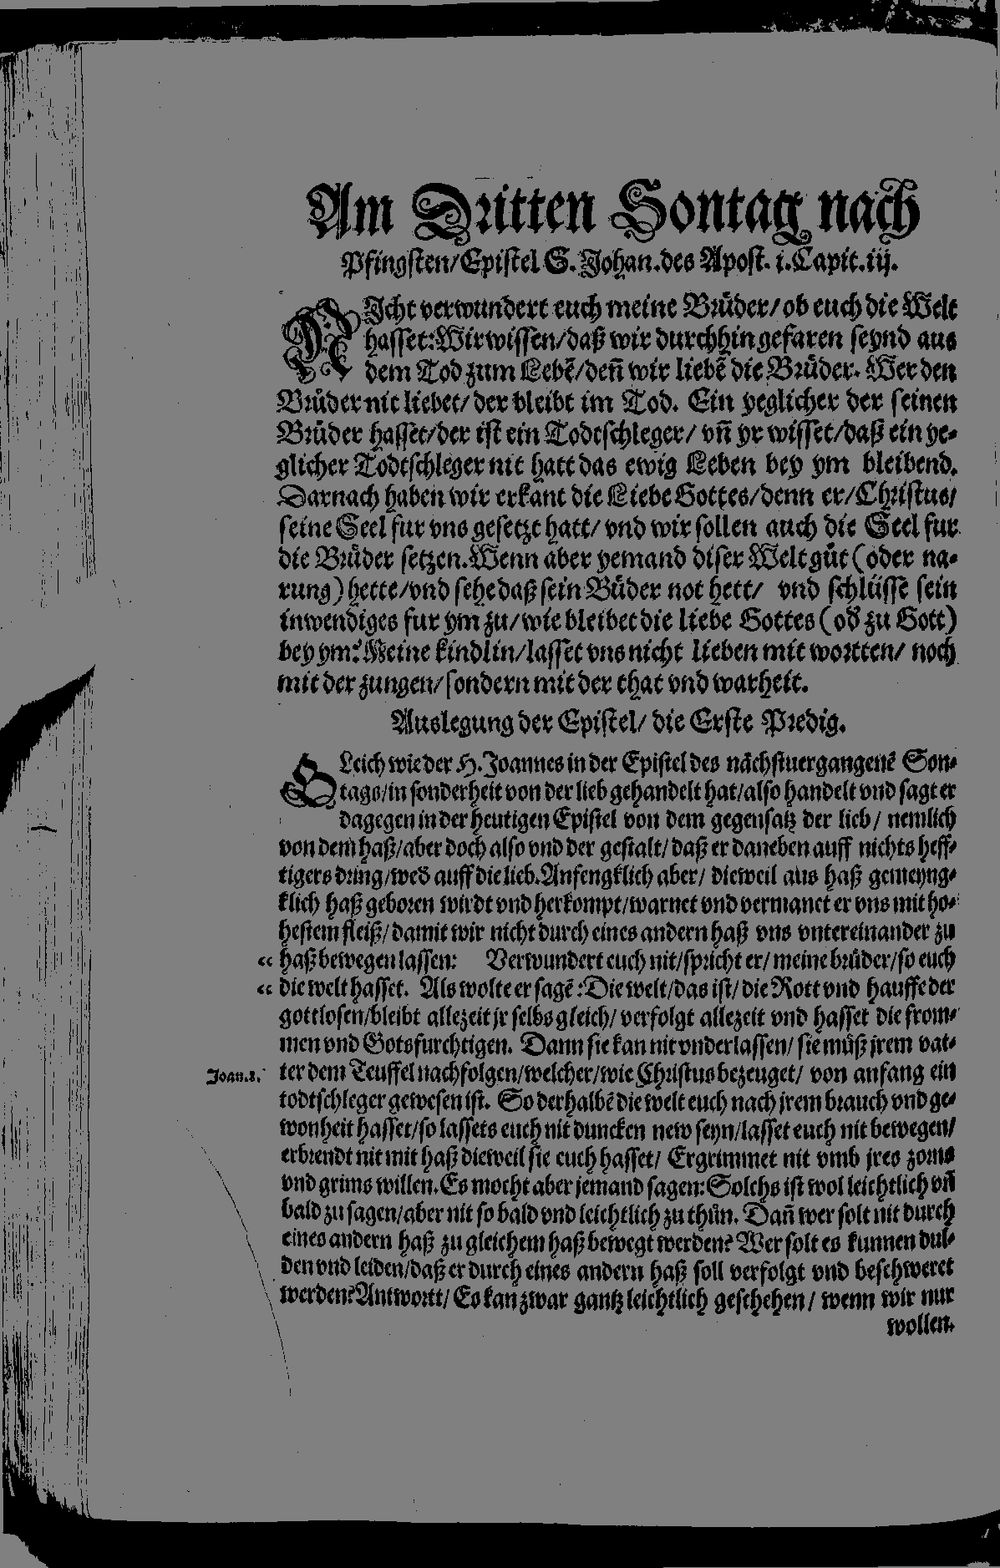 Am Dritten Sontag nach
Pfingsten/Epistel S. Johan.des Apost. i.Capit.iij.
NIcht verwundert euch meine Brüder/ ob euch die Welt
hasset:Wir wissen/daß wir durchhin gefaren seynd aus
dem Tod zum Lebẽ/deñ wir liebẽ die Brüder. Wer den
Brüder nit liebet/ der bleibt im Tod. Ein yeglicher der seinen
Brüder hasset/der ist ein Todtschleger/ vñ yr wisset/daß ein ye-
glicher Todtschleger nit hatt das ewig Leben bey ym bleibend.
Darnach haben wir erkant die Liebe Gottes/denn er/Christus/
seine Seel fur vns gesetzt hatt/ vnd wir sollen auch die Seel fur
die Brüder setzen.Wenn aber yemand diser Welt güt (oder na-
rung) hette/vnd sehe daß sein Büder not hett/ vnd schlüsse sein
inwendiges fur ym zu/ wie bleibet die liebe Gottes (od zu Gott)
bey ym? Meine kindlin/lasset vns nicht lieben mit wortten/ noch
mit der zungen/sondern mit der that vnd warheit.
Auslegung der Epistel/ die Erste Predig.
GLeich wie der H. Joannes in der Epistel des nächstuergangenẽ Son-
tags/in sonderheit von der lieb gehandelt hat/also handelt vnd sagt er
dagegen in der heutigen Epistel von dem gegensatz der lieb/ nemlich
von dem haß/aber doch also vnd der gestalt/ daß er daneben auff nichts heff-
tigers dring/wed auff die lieb.Anfengklich aber/ dieweil aus haß gemeyng-
klich haß geboren wirdt vnd herkompt/warnet vnd vermanet er vns mit ho-
hestem fleiß/damit wir nicht durch eines andern haß vns vntereinander zu
" haß bewegen lassen: Verwundert euch nit/spricht er/ meine brüder/so euch
" die welt hasset. Als wolte er sagẽ:Die welt/das ist/ die Rott vnd hauffe der
gottlosen/bleibt allezeit jr selbs gleich/ verfolgt allezeit vnd hasset die from-
men vnd Gotsfurchtigen. Dann sie kan nit vnderlassen/ sie müß jrem vat-
Joan.8. ter dem Teuffel nachfolgen/welcher/wie Christus bezeuget/ von anfang ein
todtschleger gewesen ist. So derhalbẽ die welt euch nach jrem brauch vnd ge-
wonheit hasset/so lassets euch nit duncken new seyn/lasset euch nit bewegen/
erbrendt nit mit haß dieweil sie euch hasset/ Ergrimmet nit vmb jres zorns
vnd grims willen.Es mocht aber jemand sagen:Solchs ist wol leichtlich vñ
bald zu sagen/aber nit so bald vnd leichtlich zu thün. Dañ wer solt nit durch
eines andern haß zu gleichem haß bewegt werden? Wer solt es kunnen dul-
den vnd leiden/daß er durch eines andern haß soll verfolgt vnd beschweret
werden?Antwortt/ Es kan zwar gantz leichtlich geschehen/ wenn wir nur
wollen.